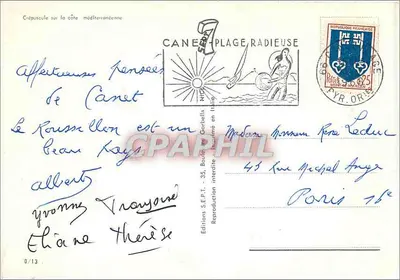 Crépuscule sur la côte méditerranéenne
CANET-PLAGE RADIEUSE
RÉPUBLIQUE FRANÇAISE
0,25
PYR. ORles
Affectueuses pensées
de Canet
Le Roussillon est un
beau pays
Albert
Yvonne Françoise
Eliane Thérèse
8/13
Editions S.E.P.T., 35,
Reproduction interdite
en Italie
Madame Monsieur René Leduc
45 rue Michel Ange
Paris 16e
CPAPHIL